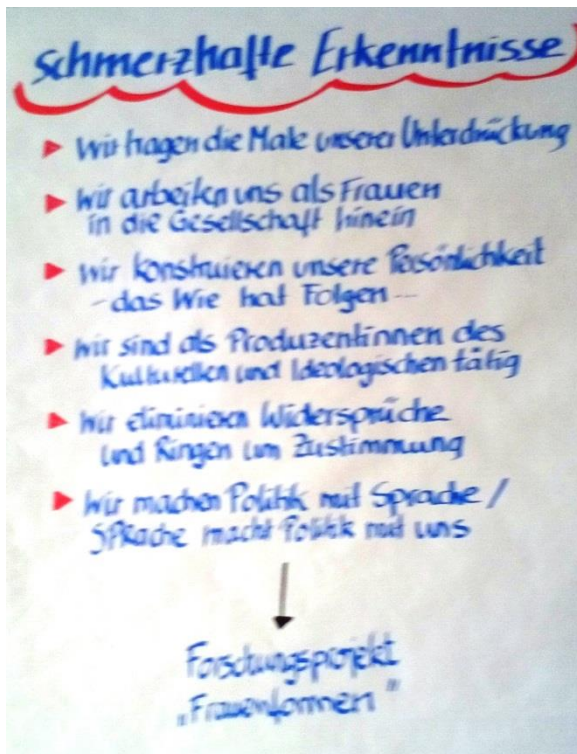 Schmerzhafte Erkenntnisse
Wir tragen die Male unserer Unterdrückung
Wir arbeiten uns als Frauen
in die Gesellschaft hinein
Wir konstruieren unsere Persönlichkeit
- das Wie hat Folgen ...
Wir sind als Produzentinnen des
Kulturellen und Ideologischen tätig
Wir eliminieren Widersprüche
und Ringen um Zustimmung
Wir machen Politik mit Sprache /
Sprache macht Politik mit uns
Forschungsprojekt
„Frauenformen"